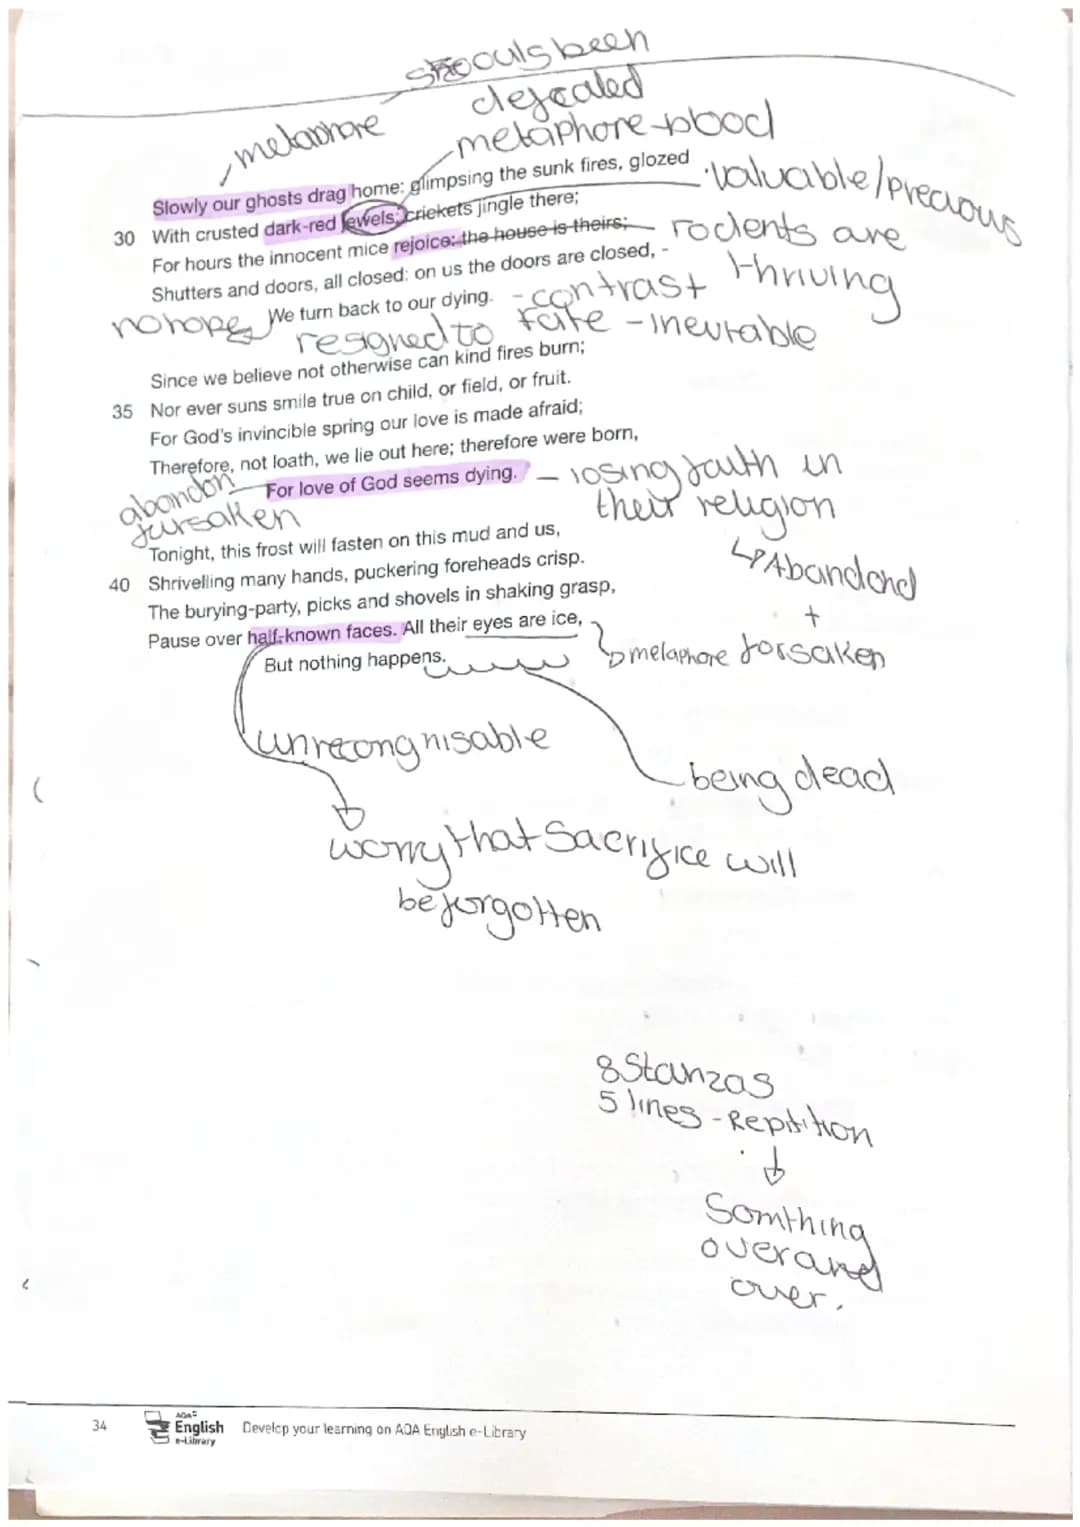 souls been
defeated
metaphore
metaphore - blood
Slowly our ghosts drag home: glimpsing the sunk fires, glozed
· valuable/precious
30 With crusted dark-red jewels; crickets jingle there;
For hours the innocent mice rejoice: the house is theirs;
rodents are
thriving
Shutters and doors, all closed: on us the doors are closed, -
We turn back to our dying. - contrast
no hope
resigned to fate - inevitable
Since we believe not otherwise can kind fires burn;
35 Nor ever suns smile true on child, or field, or fruit.
For God's invincible spring our love is made afraid;
Therefore, not loath, we lie out here; therefore were born,
For love of God seems dying. - losing faith in
their religion
abandon
fursaken
↳ Abandond
+
forsaken
Tonight, this frost will fasten on this mud and us,
40 Shrivelling many hands, puckering foreheads crisp.
The burying-party, picks and shovels in shaking grasp,
Pause over half-known faces. All their eyes are ice,
metaphore
But nothing happens.
unrecongnisable
being dead
worry that Sacrifice will
be forgotten
8 Stanzas
5 lines - Repitition
Somthing
over and
over.
34
AQA
English
e-Library
Develop your learning on AQA English e-Library